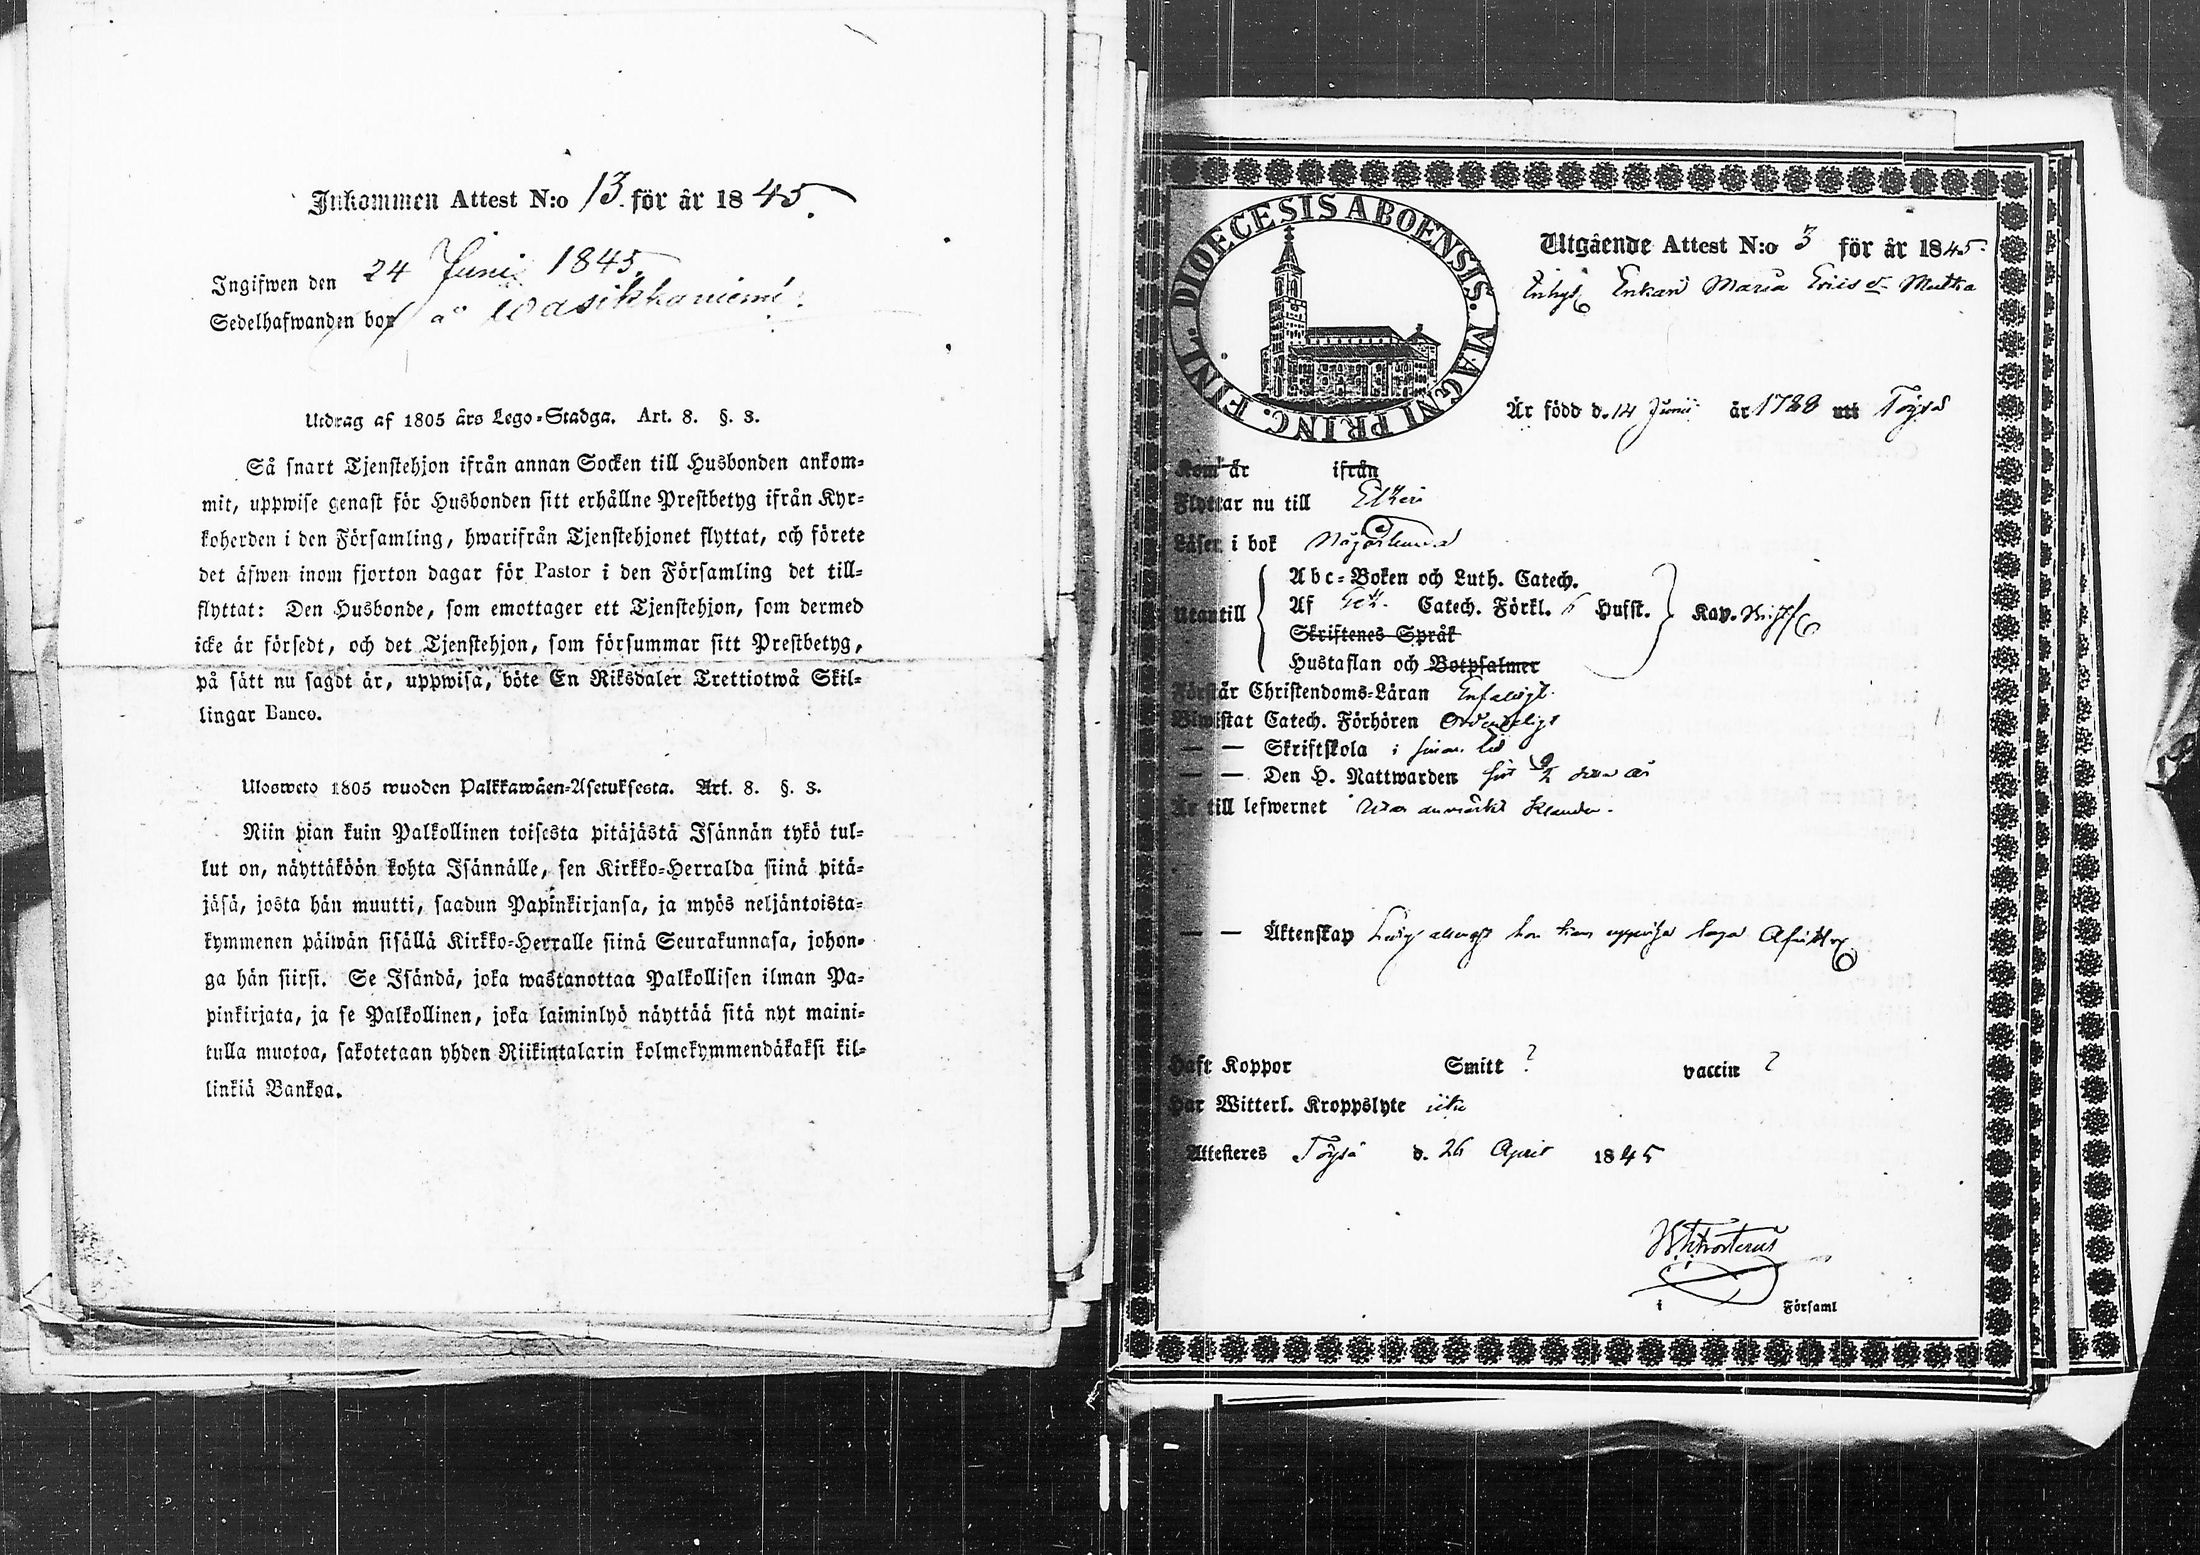 Inkommen Attest N:o 13 för år 1845.
Ingifwen den 24 Juni 1845.
Sedelhafwanden bor å Wasikkaniemi.
Utdrag af 1805 års Lego-Stadga. Art. 8. §. 3.
Så snart Tjenstehjon ifrån annan Socken till Husbonden ankom-
mit, uppwise genast för Husbonden sitt erhållne Prestbetyg ifrån Kyr-
koherden i den Församling, hwarifrån Tjenstehjonet flyttat, och förete
det äfwen inom fjorton dagar för Pastor i den Församling det till-
flyttat: Den Husbonde, som emottager ett Tjenstehjon, som dermed
icke är försedt, och det Tjenstehjon, som försummar sitt Prestbetyg,
på sätt nu sagdt är, uppwisa, böte En Riksdaler Trettiotwå Skil-
lingar Banco.
Ulosweto 1805 wuoden Palkkawäen-Asetuksesta. Art. 8. §. 3.
Niin pian kuin Palkollinen toisesta pitäjästä Isännän tykö tul-
lut on, näyttäköön kohta Isännälle, sen Kirkko-Herralda siinä pitä-
jäsä, josta hän muutti, saadun Papinkirjansa, ja myös neljäntoista-
kymmenen päiwän sisällä Kirkko-Herralle siinä Seurakunnasa, johon-
ga hän siirsi. Se Isändä, joka wastanottaa Palkollisen ilman Pa-
pinkirjata, ja se Palkollinen, joka laiminlyö näyttää sitä nyt maini-
tulla muotoa, sakotetaan yhden Riikintalarin kolmekymmendäkaksi kil-
linkiä Bankoa.
DIOECESIS ABOENSIS. MAGNI PRINC. FINL.
Utgående Attest N:o 3 för år 1845
Enkan Maria Ericsdr
Är född d. 14 Junii år 1788 uti Töysä
Kom år ifrån
Flyttar nu till Etseri
Läser i bok Någorlunda
Abc-Boken och Luth. Catech.
Utantill Af Catech. Förkl. 6 Hufst. Kap.
Skriftenes Språk
Hustaflan och Botpsalmer
Förstår Christendoms-Läran Enfaldigt
Biwistat Catech. Förhören Ordentligt
— — Skriftskola i sinom tid
— — Den H. Nattwarden
Är till lefwernet utan anmärkt klander.
— — Äktenskap Ledig
Haft Koppor Smitt ? vaccin ?
Har Witterl. Kroppslyte icke
Attesteras Töysä d. 26 April 1845
i Församl